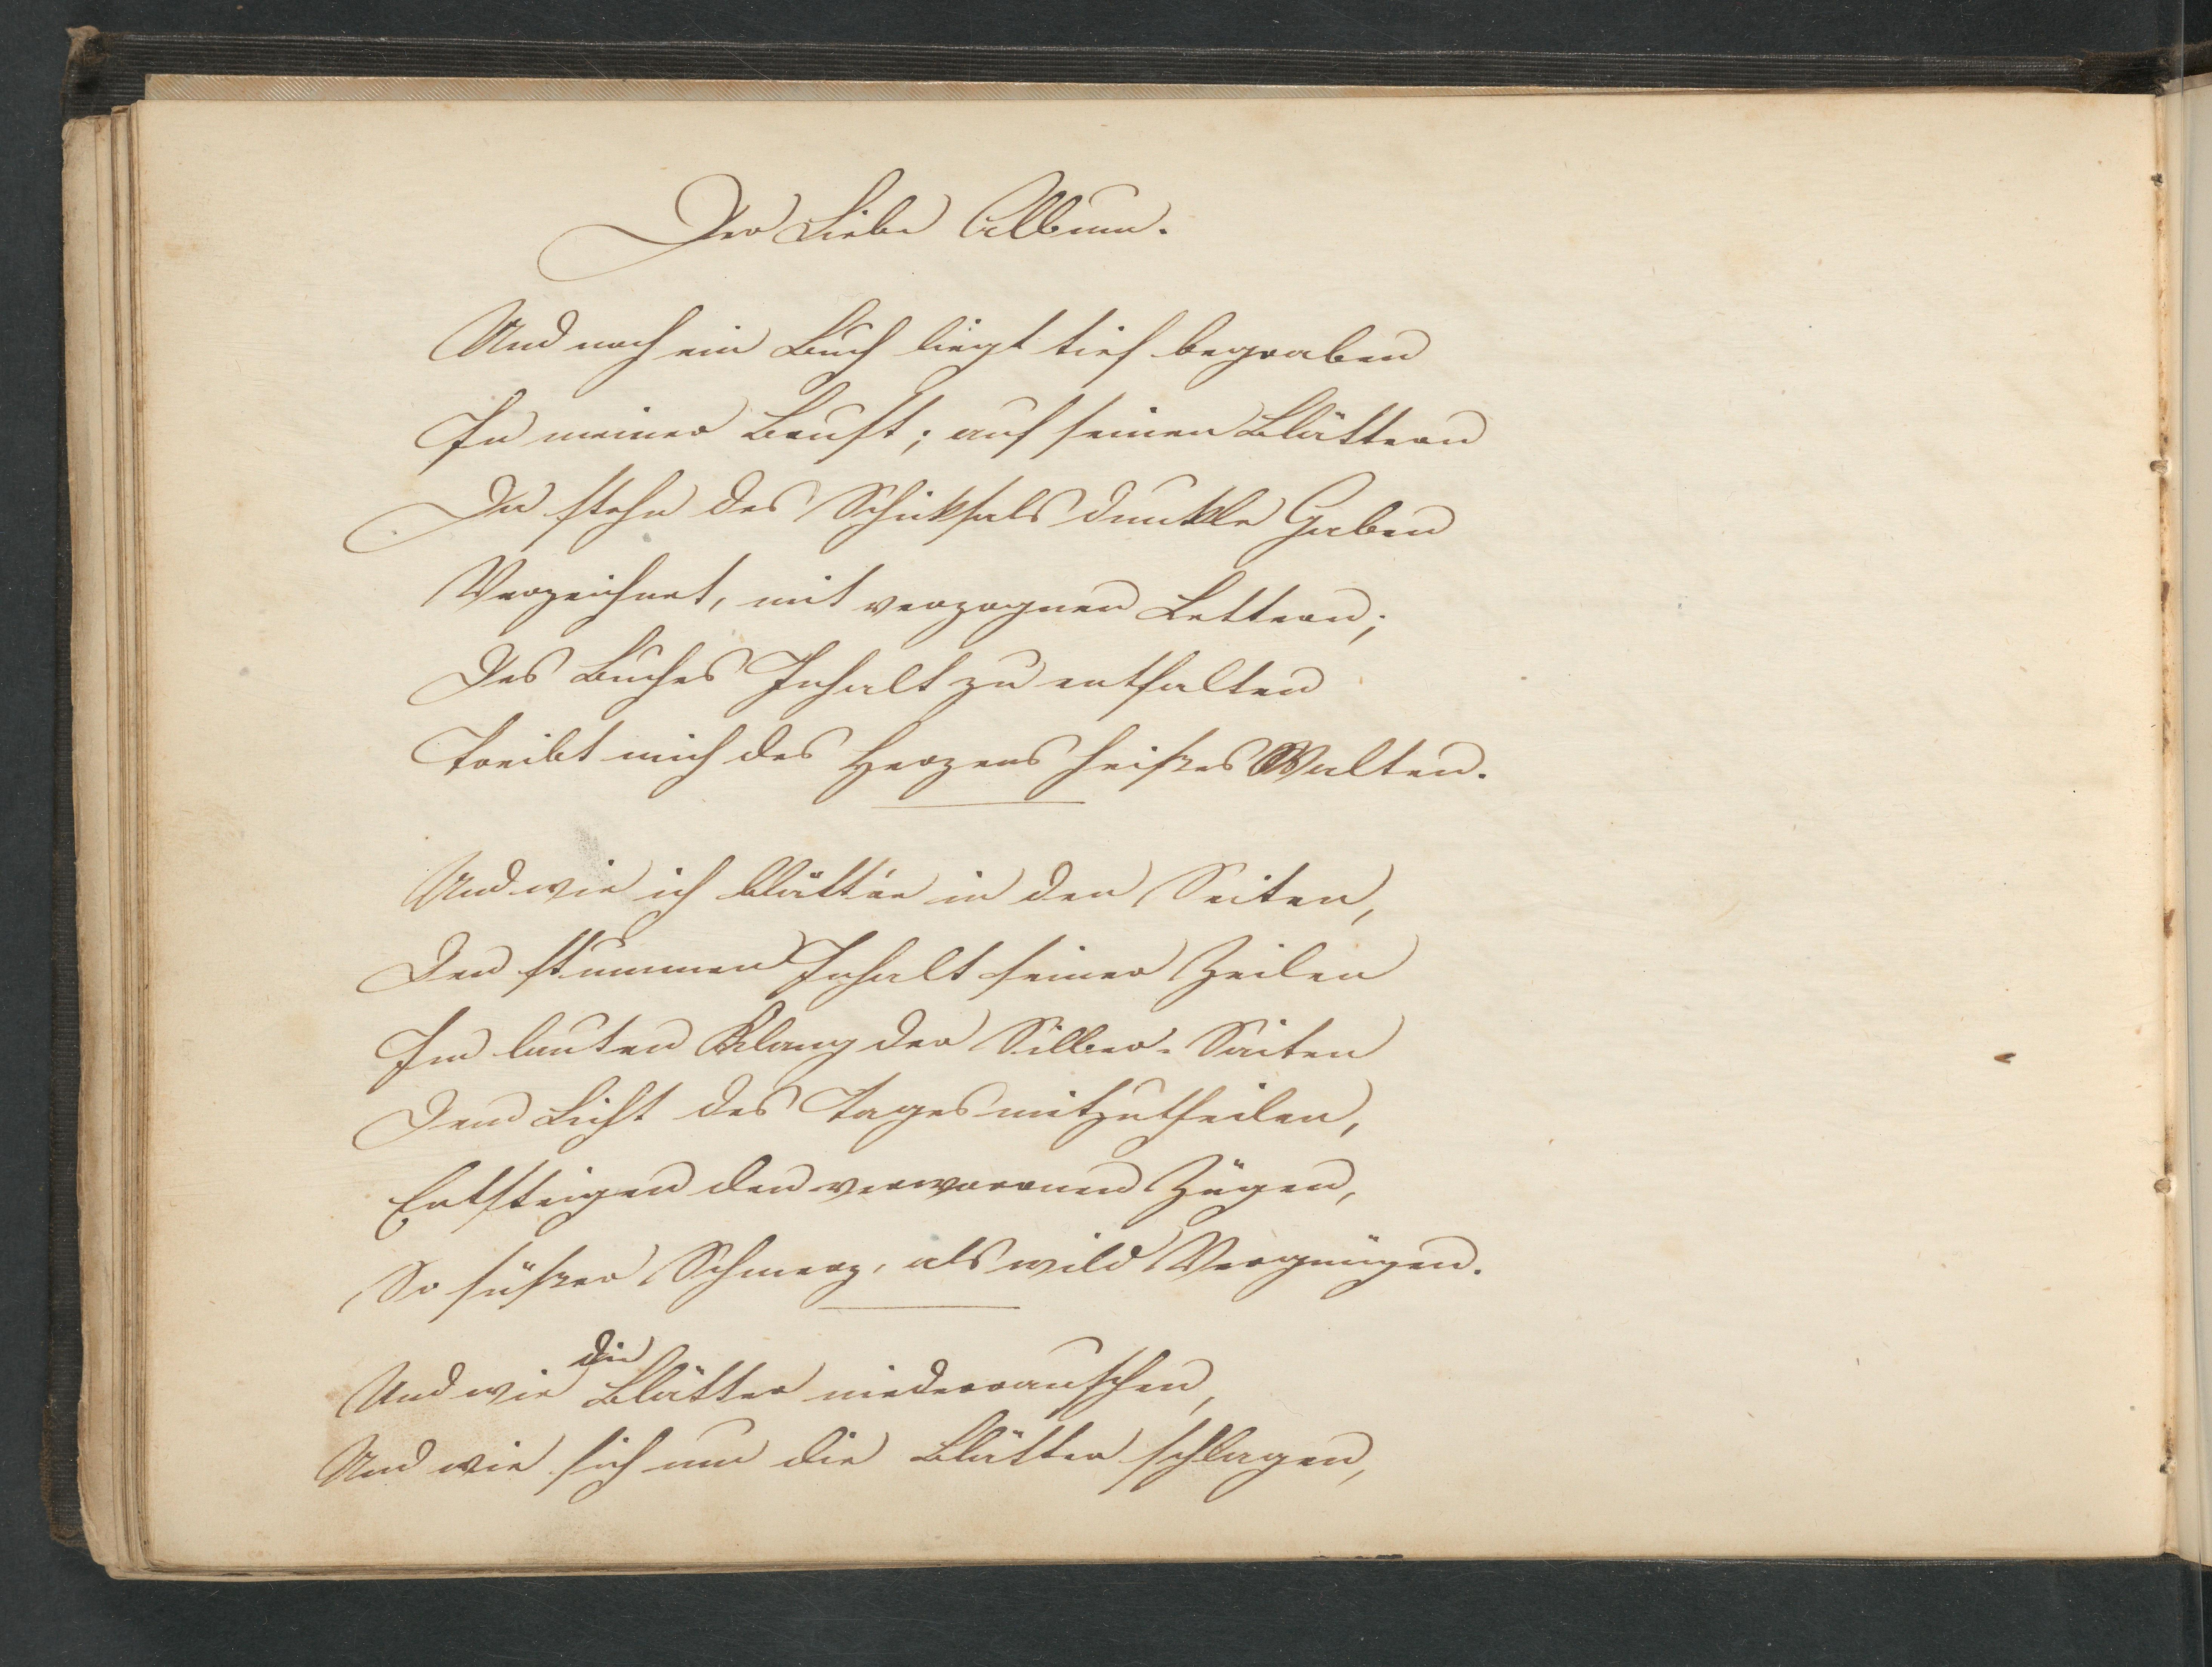 Der Liebe Album.
Und noch ein Buch liegt tief begraben
In meiner Brust; auf seinen Blättern
Da stehn des Schicksals dunkle Gaben
Verzeichnet, mit verzognen Lettern;
Des Buches Inhalt zu entfalten
Treibt mich des Herzens heißes Walten.
Und wie ich blätt're in den Seiten,
Den stummen Inhalt seiner Zeilen
Im lauten Klang der Silber-Saiten
Dem Licht des Tages mitzutheilen,
Entsteigen den verworrnen Zügen,
So süßer Schmerz, als wild Vergnügen.
Und wie die Blätter niederrauschen,
Und wie sich um die Blätter schlagen,